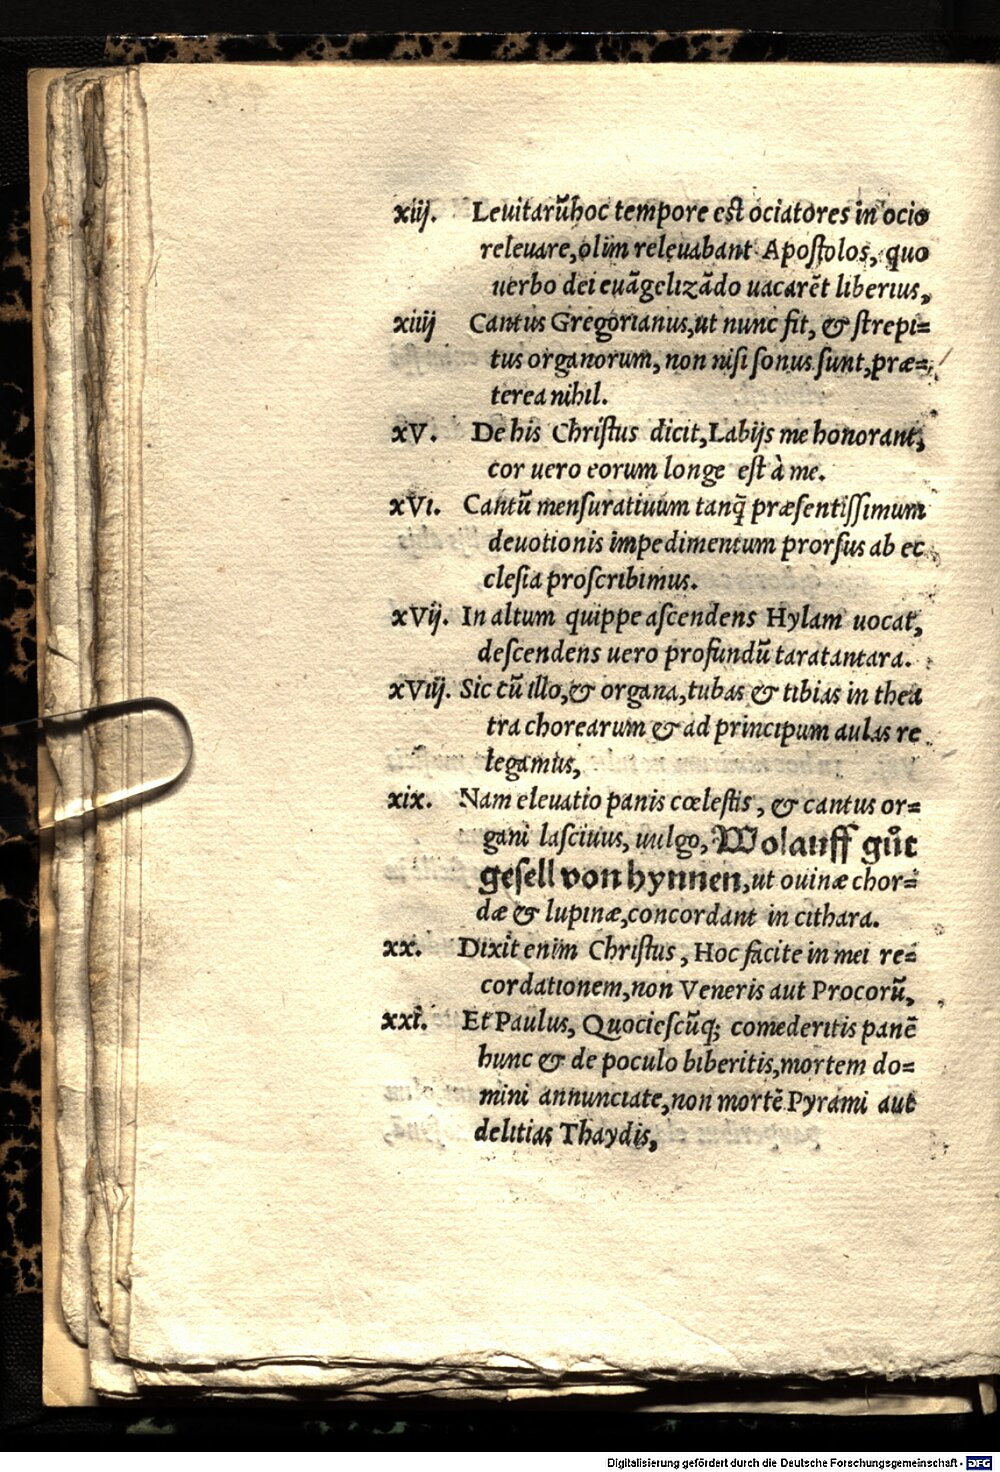 xiij. Leuitarũ hoc tempore est ociatores in ocio
releuare, olim releuabant Apostolos, quo
uerbo dei euãgelizãdo uacarẽt liberius,
xiiij Cantus Gregorianus, ut nunc fit, & strepi=
tus organorum, non nisi sonus sunt, præ=
terea nihil.
xv. De his Christus dicit, Labijs me honorant,
cor uero eorum longe est à me.
xvi. Cantũ mensuratiuum tanq̃ præsentissimum
deuotionis impedimentum prorsus ab ec
clesia proscribimus.
xvij. In altum quippe ascendens Hylam uocat,
descendens uero profundũ taratantara.
xviij. Sic cũ illo, & organa, tubas & tibias in thea
tra chorearum & ad principum aulas re
legamus,
xix. Nam eleuatio panis cœlestis, & cantus or=
gani lasciuus, uulgo, Wolauff gůt
gesell von hynnen, ut ouinæ chor=
dæ & lupinæ, concordant in cithara.
xx. Dixit enim Christus, Hoc facite in mei re=
cordationem, non Veneris aut Procorũ,
xxi. Et Paulus, Quociescũq; comederitis panẽ
hunc & de poculo biberitis, mortem do=
mini annunciate, non mortẽ Pyrami aut
delitias Thaydis,
Digitalisierung gefördert durch die Deutsche Forschungsgemeinschaft - DFG